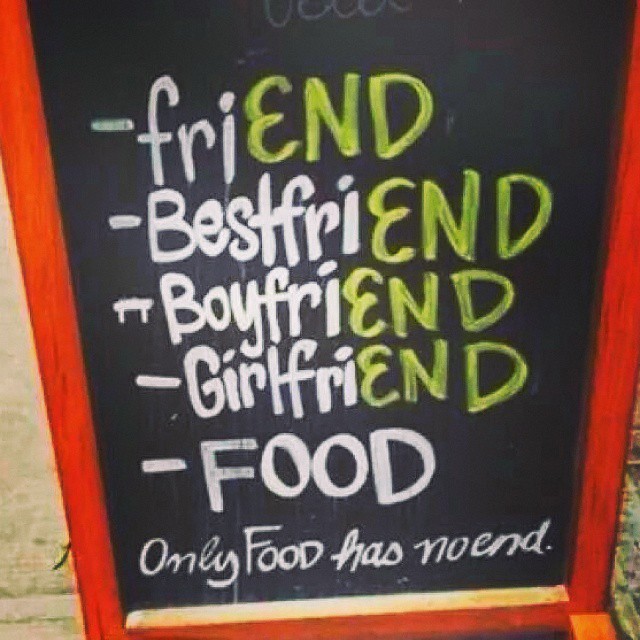 - friEND
- BestfriEND
- BoyfriEND
- GirlfriEND
- FOOD
Only Food has no end.